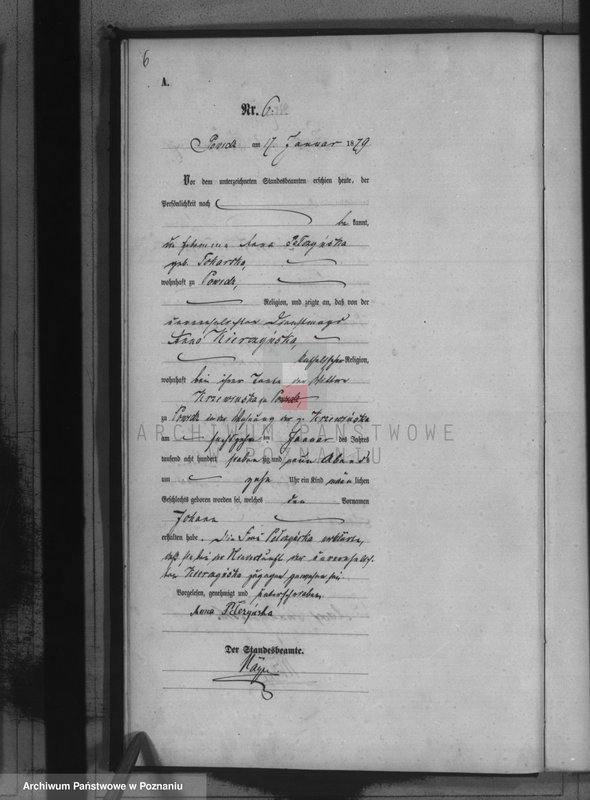 6
A.
Nr. 6.
Powidz am 17 Januar 1879
Vor dem unterzeichneten Standesbeamten erschien heute, der
Persönlichkeit nach
be kannt,
die Hebamme Anna
geb. Tokarska,
wohnhaft zu Powidz,
Religion, und zeigte an, daß von der
unverehelichten Dienstmagd
Anna
katholischer Religion,
wohnhaft bei ihrer Tante der Wittwe
Krzewinska zu Powidz,
zu Powidz in der Wohnung der p. Krzewinska
am sechszehn ten Januar des Jahres
tausend acht hundert sieben zig und neun Abends
um zehn Uhr ein Kind männ lichen
Geschlechts geboren worden sei, welches den Vornamen
Johann
erhalten habe. Die Frau erklärte,
daß sie bei der Niederkunft der unverehelich-
ten zugegen gewesen sei
Vorgelesen, genehmigt und unterschrieben
Anna
Der Standesbeamte.
ARCHIWUM PAŃSTWOWE
W POZNANIU
Archiwum Państwowe w Poznaniu